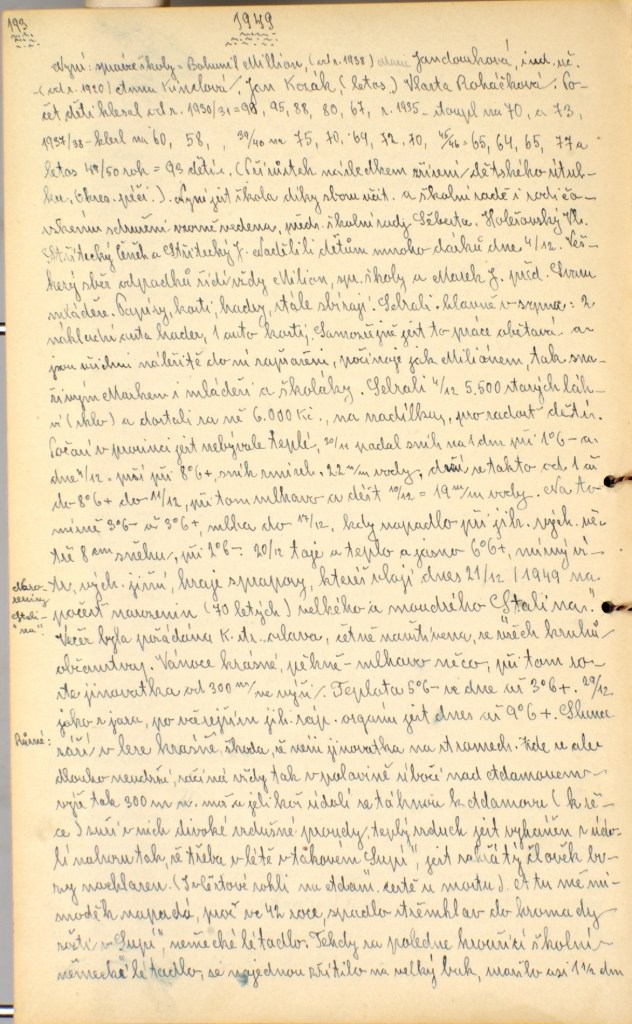 193
1949
Nyní: správce školy = Bohumil Millian, (od r. 1938) Jandourková, ind. uč.
(od r. 1920) Anna Künclová, Jan Kozák, (letos) Vlasta Roháčková. Po-
čet dětí klesal od r. 1930/31 = 90, 95, 88, 80, 67, r. 1935 - stoupl na 70, a 73,
1937/38 - klesl na 60, 58, , 39/40 na 75, 70, 69, 72, 70, 45/46 = 65, 64, 65, 77 a
letos 49/50 rok = 93 dětí. (Přírůstek následkem zřízení dětského útul-
ku, (okres. péčí.). Nyní jest škola díky sboru učit. a školní radě i rodičo-
vskému sdružení vzorně vedena, předs. školní rady Séberta. Holešovský Vl.
Střítecký Čeněk a Střítecký J. Nadělili dětům mnoho dárků dne 4/12. Veš-
kerý sběr odpadků řídí vždy Milian, spr. školy a Marek J. před. Svazu
mládeže. Papíry, kosti, hadry, stále sbírají. Sebrali hlavně v srpnu: 2
nákladní auta hader, 1 auto kostí. Samozřejmě jest to práce obětavá a
jsou všichni náležitě do ní zapřaženi, počínaje jak Miliánem, tak sna-
živým Markem i mládeží a školáky. Sebrali 4/12 5.500 starých láh-
ví (sklo) a dostali za ně 6.000 Kč., na nadílku, pro radost dětí.
Počasí v prosinci jest nebývale teplé, 30/11 padal sníh na 1 dm při 1°C- a
dne 4/12. prší při 8°C+, sník zmizel. 22 m/m vody, drží se takto od 1 až
do 8°C+ do 11/12, při tom mlhavo a déšť 10/12 = 19 m/m vody. Na to
mírně 3°C- až 3°C+, mlha do 17/12, kdy napadlo při jih. vých. vě-
tře 8 cm sněhu, při 2°C-. 20/12 taje a teplo a jasno 6°C+, mírný ví-
tr, vých. jižní, hraje s prapory, kteréž vlají dnes 21/12 1949 na
Naro-
zeniny
Stali-
"na".
počest narozenin (70 letých) velkého a moudrého "Stalina".
Večer byla pořádána K. st. oslava, četně navštívena, ze všech kruhů
občanstva. Vánoce krásné, pěkně - mlhavo něco, při tom ro-
ste jinovatka od 300 m/ve výši/. Teplota 5°C- ve dne až 3°C+. 29/12
jako z jara, po včerejším jih. záp. orgánu jest dnes až 9°C+. Slunce
Různé:
září v lese krásně, škoda, že není jinovatka na stromech. Kde se ale
dlouho neudrží, začíná vždy tak v polovině úbočí nad Adamovem
výše tak 300 m n. moř. a jelikož údolí se táhnou k Adamovu (k ře-
ce) suší v nich divoké vzdušné proudy, teplý vzduch jest vyháněn z údo-
lí nahoru tak, že třeba v létě v takovém "Supí", jest rozhřátý člověk br-
zy nachlazen. (Jedlé rohli na Adam. cestě u mostu). A tu mě mi-
moděk napadá, proč ve 42 roce, spadlo střemhlav do hromady
roští v "Supí", německé létadlo. Tehdy za poledne kroužící školní
německé létadlo, se najednou zřítilo na velký buk, mařilo asi 1 1/2 dm